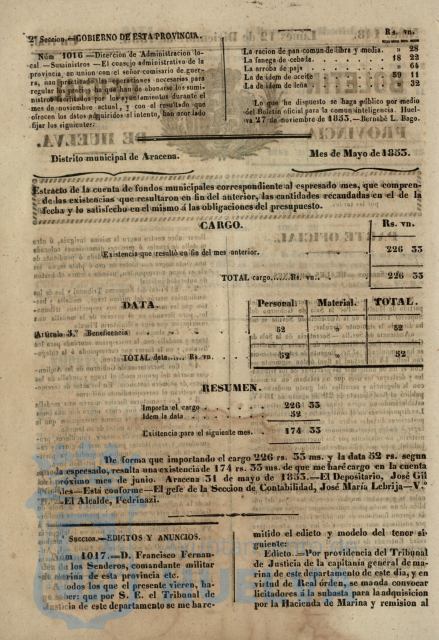 2ª Seccion.—GOBIERNO DE ESTA PROVINCIA.
Núm 1016 —Direrción de Administracion lo-
cal.—Suministros —El consejo administrativo de la
provincia, en union con el señor comisario de guer-
ra, han practicado las operaciones necesarias para
regular los precios que han de abonarse los sumi-
nistros facilitados por los ayuntamientos durante el
mes de noviembre actual, y con el resultado que
ofrecen los datos adquiridos al intento, han acordado
fijar los siguientes:
Rs. vn.
La racion de pan comun de libra y media. » 28
La fanega de cebada. 18 22
La arroba de paja » 66
La de idem de aceite 59 11
La de idem de leña 32
Lo que he dispuesto se haga público por medio
del Boletin oficial para la comun inteligencia. Huel-
va 27 de noviembre de 1853.—Bernabé L. Bago.
Distrito municipal de Aracena. Mes de Mayo de 1853.
Estracto de la cuenta de fondos municipales correspondiente al espresado mes, que compren-
de las existencias que resultaron en fin del anterior, las cantidades recaudadas en el de la
fecha y lo satisfecho en el mismo á las obligaciones del presupuesto.
CARGO. Rs. vn.
Existencia que resultó en fin del mes anterior. 226 33
TOTAL cargo.....Rs. vn. 226 33
DATA. Personal. Material. TOTAL.
Artículo 5.º Beneficencia 52 » 52
TOTAL data...... Rs vn. 52 » 52
RESUMEN.
Importa el cargo 226 33
Idem la data 52
Existencia para el siguiente mes. 174 33
De forma que importando el cargo 226 rs. 33 ms. y la data 52 rs. segun
queda espresado, resulta una existencia de 174 rs. 33 ms. de que me haré cargo en la cuenta
del próximo mes de junio. Aracena 31 de mayo de 1853.—El Depositario, José Gil
—Está conforme—El gefe de la Seccion de Contabilidad, José María Lebrija—V.º
—El Alcalde, Pedrinazi.
Seccion.—EDICTOS Y ANUNCIOS.
Núm 1017.—D. Francisco Fernan-
dez de los Senderos, comandante militar
de marina de esta provincia etc.
A todos los que el presente vieren, ha-
go saber: que por S. E. el Tribunal de
Justicia de este departamento se me ha re-
mitido el edicto y modelo del tenor si-
guiente:
Edicto.—Por providencia del Tribunal
de Justicia de la capitanía general de ma-
rina de este departamento de este dia, y en
virtud de Real órden, se manda convocar
licitadores á la subasta para la adquisicion
por la Hacienda de Marina y remision al